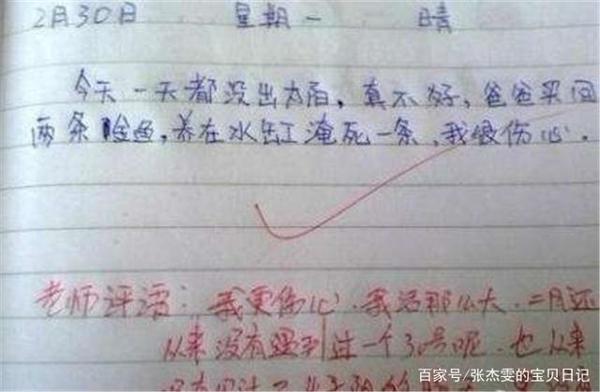 2月30日 星期一 晴
今天一天都没出太阳，真不好，爸爸买回
两条金鱼，养在水缸淹死一条，我很伤心．
老师评语：我更伤心．我活那么大．二月还
从来没有遇到过一个30号呢．也从来
百家号/张杰雯的宝贝日记